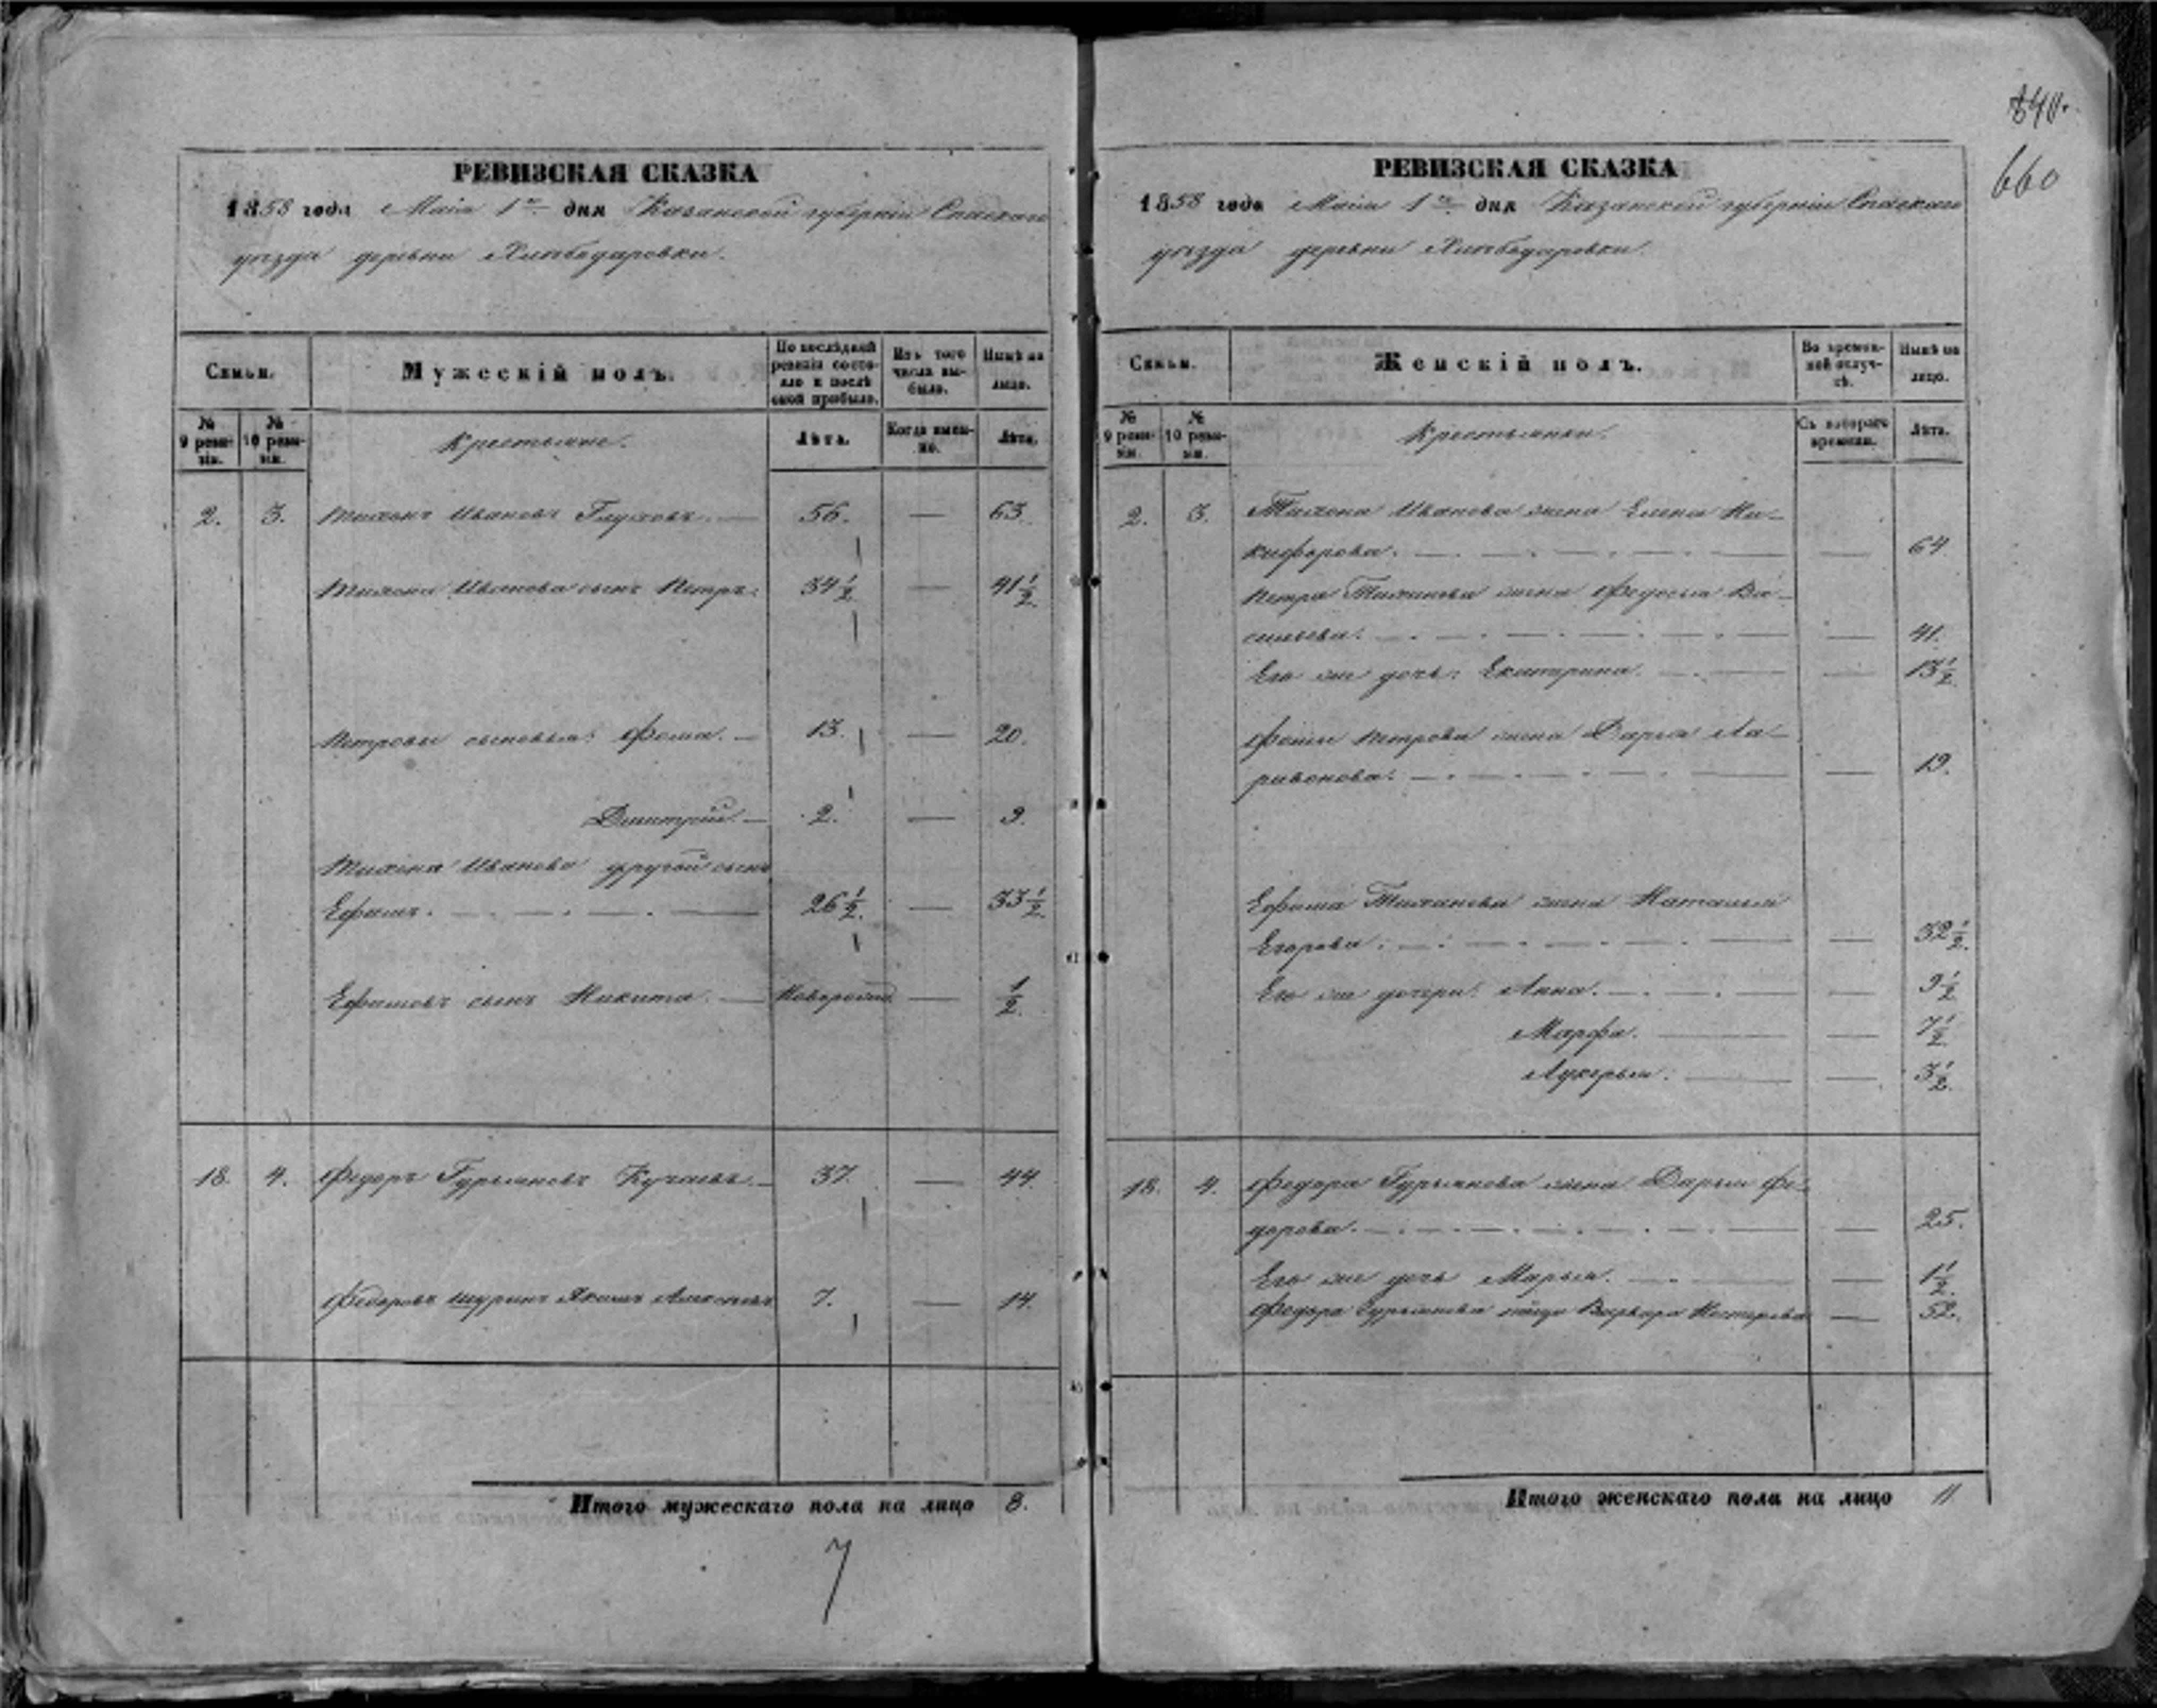 840.
660
РЕВИЗСКАЯ СКАЗКА
1858 года Маія 1го дня Казанской губерніи Спаскаго
уѣзда деревни
Семьи.
Мужескій полъ.
По послѣдней ревизіи состояло и послѣ оной прибыло.
Изъ того числа выбыло.
Нынѣ на лицо.
№ 9 ревизіи.
№ 10 ревизіи.
Крестьяне.
Лѣта.
Когда именно.
Лѣта.
2. 3. Тихонъ Ивановъ Глуховъ. — 56. — 63.
Тихона Иванова сынъ Петръ. 34 1/2 — 41 1/2.
Петровы сыновья: Фома. — 13. — 20.
Дмитрій. — 2. — 9.
Тихона Иванова другой сынъ
Ефимъ. — 26 1/2. — 33 1/2.
Ефимовъ сынъ Никита. — Новорожд. — 1/2.
18. 4. Федоръ Гурьяновъ Кучаевъ. — 37. — 44.
Федоровъ шуринъ Якимъ Алексѣевъ 7. — 14.
Итого мужескаго пола на лицо 8.
7
РЕВИЗСКАЯ СКАЗКА
1858 года Маія 1го дня Казанской губерніи Спаскаго
уѣзда деревни
Семьи.
Женскій полъ.
Во временной отлучкѣ.
Нынѣ на лицо.
№ 9 ревизіи.
№ 10 ревизіи.
Крестьянки.
Съ котораго времени.
Лѣта.
2. 3. Тихона Иванова жена Елена Ни-
кифорова. — — 64
Петра Тихонова жена Федосья Ва-
сильева. — — 41.
Его же дочь: Екатерина. — — 13 1/2.
Фомы Петрова жена Дарья Ла-
ривонова. — — 19.
Ефима Тихонова жена Наталья
Егорова. — — 32 1/2.
Его же дочери: Анна. — — 9 1/2
Марфа. — — 7 1/2.
Лукерья. — — 3 1/2.
18. 4. Федора Гурьянова жена Дарья Фе-
дорова. — — 25.
Его же дочь Марья. — — 1 1/2.
Федора Гурьянова тёща Варвара Нестерова — 52.
Итого женскаго пола на лицо 11